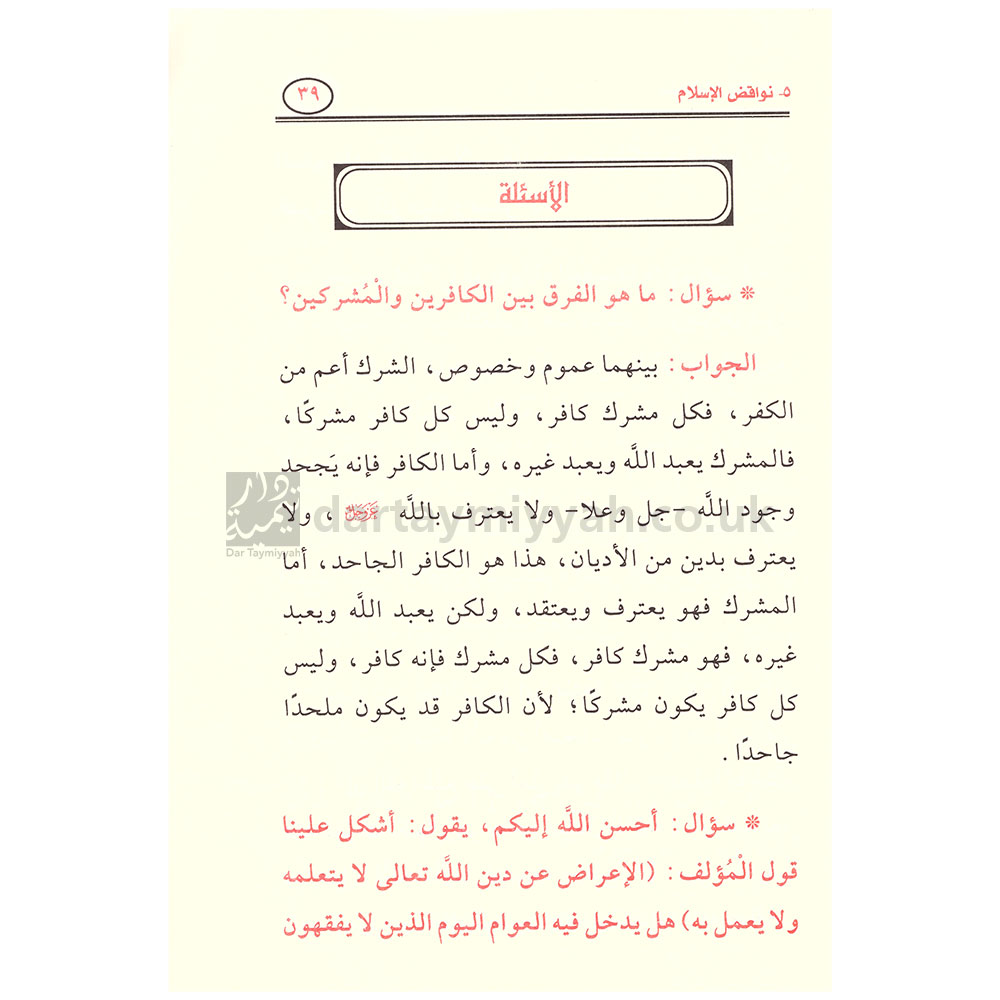 ٥- نواقض الإسلام
٣٩
الأسئلة
* سؤال: ما هو الفرق بين الكافرين والْمُشركين؟
الجواب: بينهما عموم وخصوص، الشرك أعم من
الكفر، فكل مشرك كافر، وليس كل كافر مشركًا،
فالمشرك يعبد اللَّه ويعبد غيره، وأما الكافر فإنه يَجحد
وجود اللَّه -جل وعلا- ولا يعترف باللَّه عَزَّوَجَلَّ، ولا
يعترف بدين من الأديان، هذا هو الكافر الجاحد، أما
المشرك فهو يعترف ويعتقد، ولكن يعبد اللَّه ويعبد
غيره، فهو مشرك كافر، فكل مشرك فإنه كافر، وليس
كل كافر يكون مشركًا؛ لأن الكافر قد يكون ملحدًا
جاحدًا.
* سؤال: أحسن اللَّه إليكم، يقول: أشكل علينا
قول الْمُؤلف: (الإعراض عن دين اللَّه تعالى لا يتعلمه
ولا يعمل به) هل يدخل فيه العوام اليوم الذين لا يفقهون
دار تيمية
Dar Taymiyyah
dartaymiyyah.co.uk